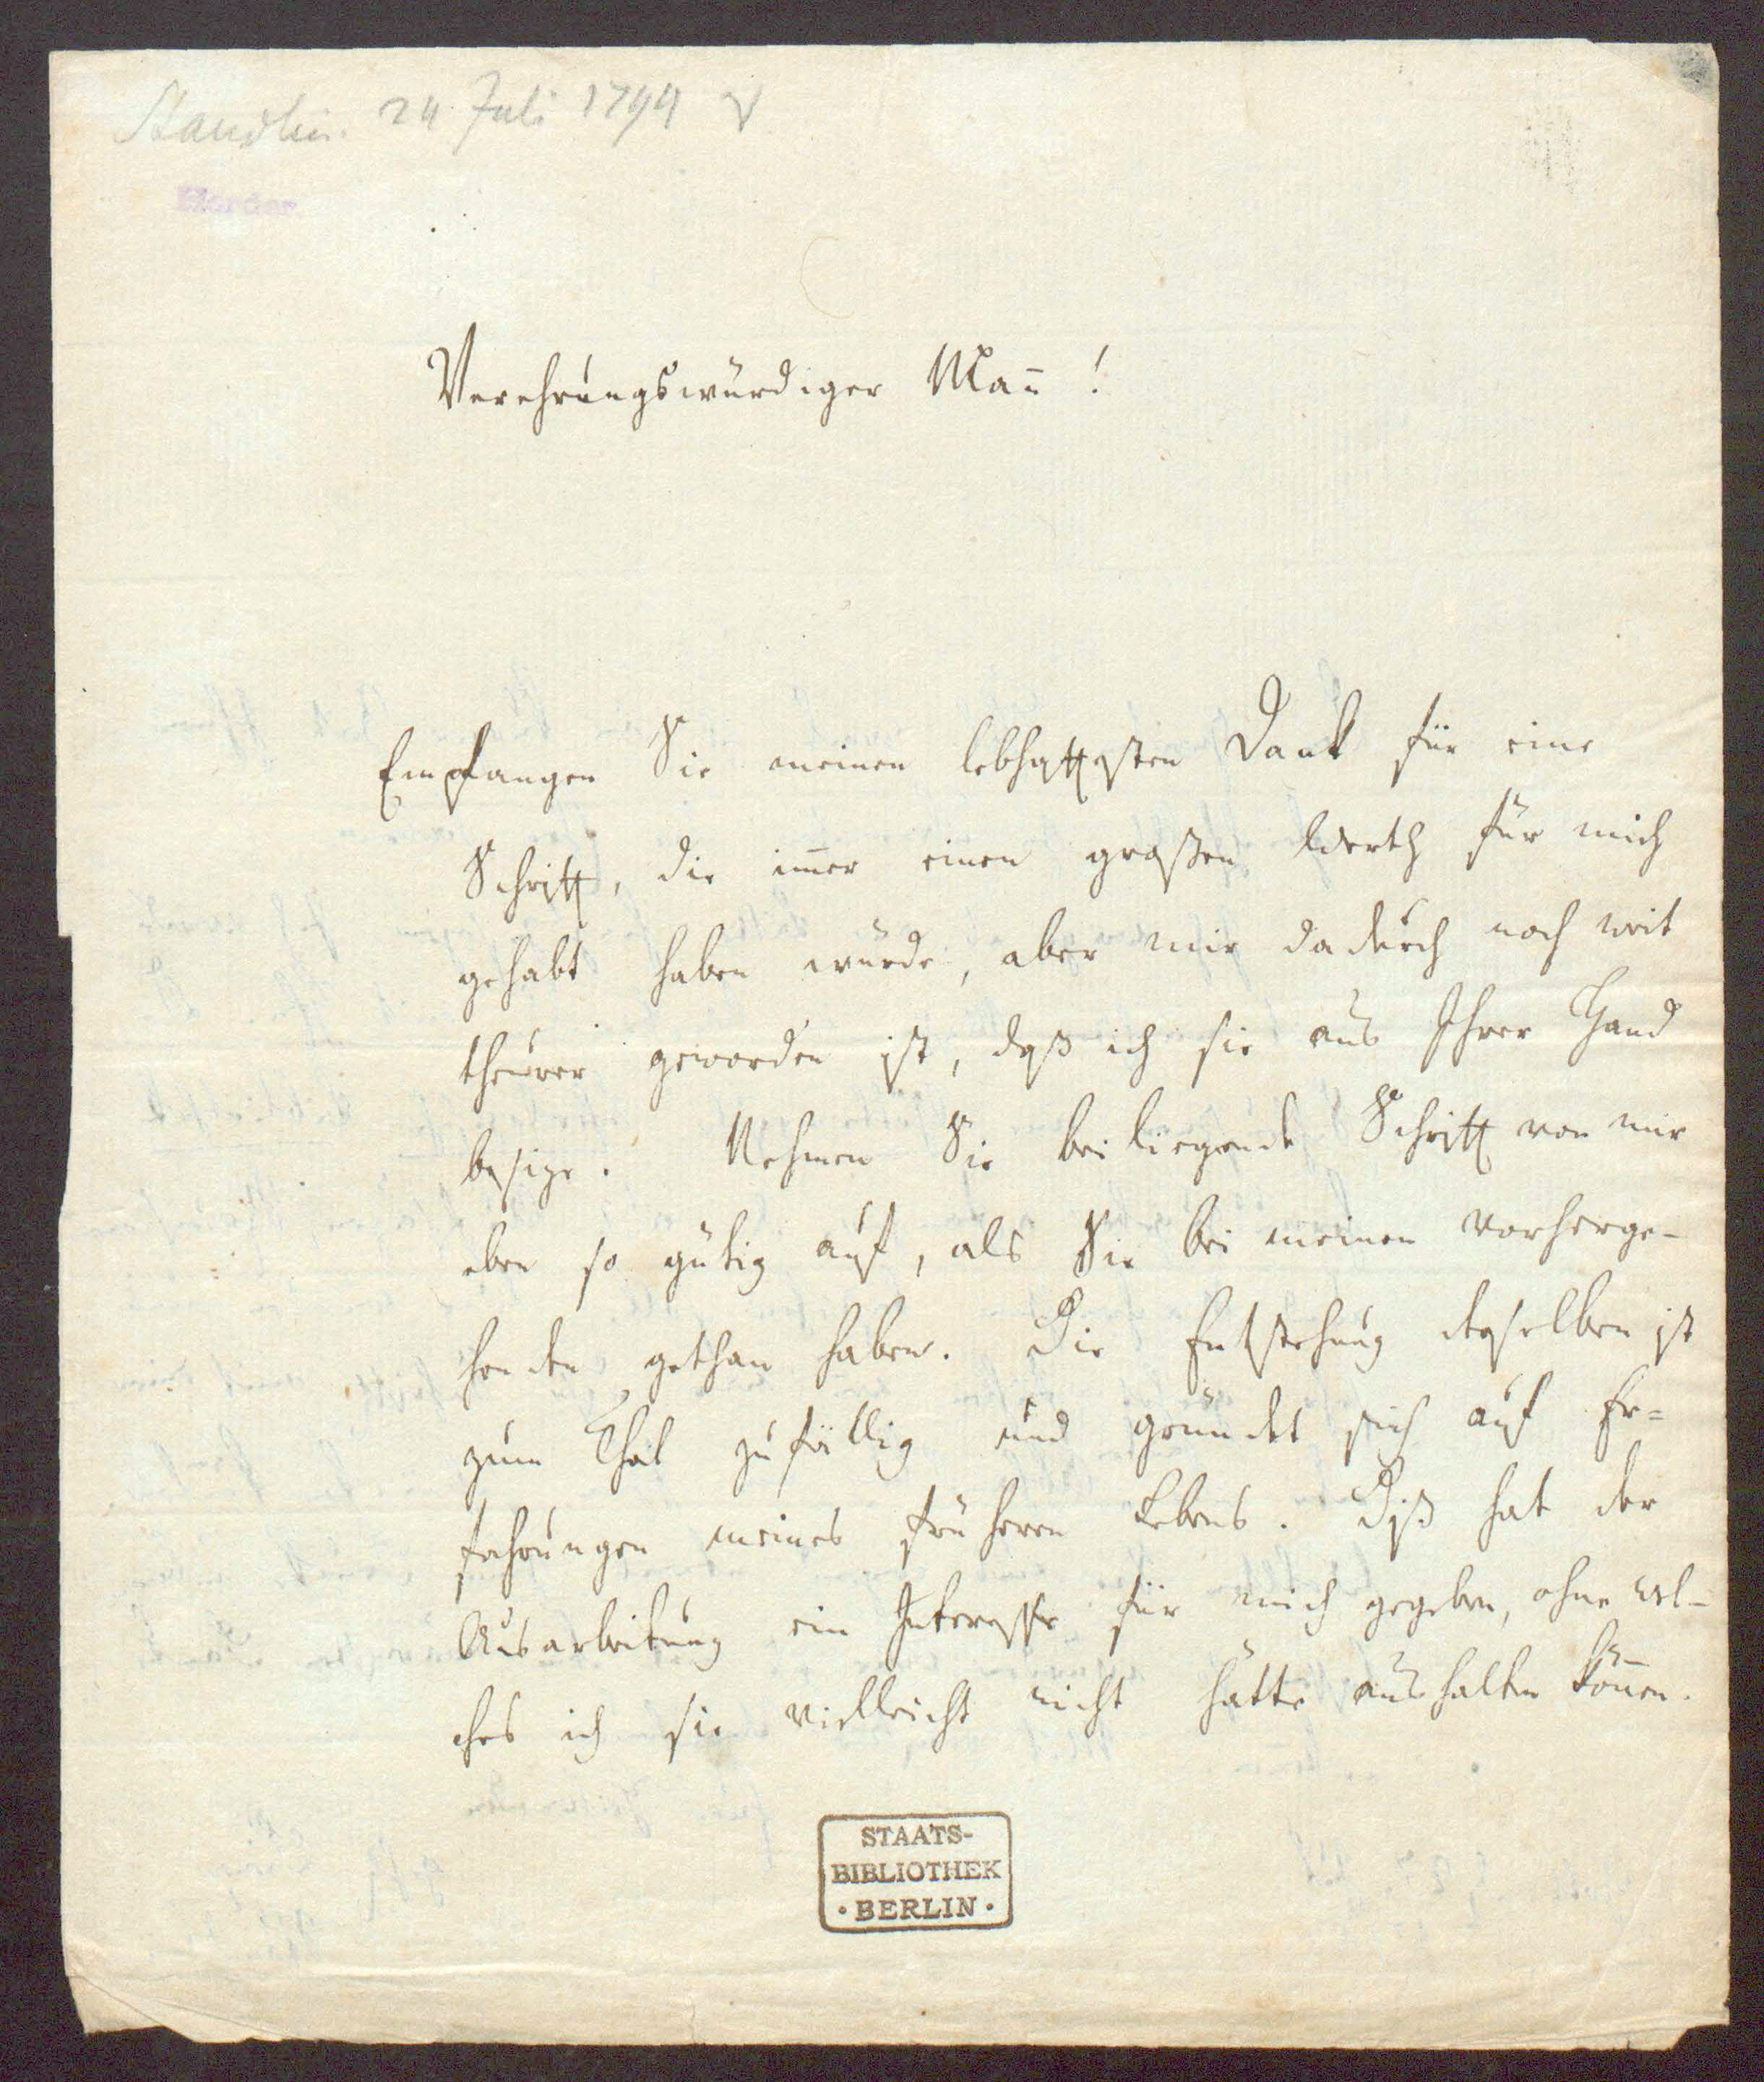 Staudlin. 24 Juli 1794
Herder
Verehrungswürdiger Mañ!
Empfangen Sie meinen lebhaftesten Dank für eine
Schrift, die im̄er einen großen Werth für mich
gehabt haben würde, aber mir dadurch noch weit
theurer geworden ist, daß ich sie aus Ihrer Hand
besize. Nehmen Sie beiliegende Schrift von mir
eben so gütig auf, als Sie bei meinen vorherge-
henden gethan haben. Die Entstehung desselben ist
zum Theil zufällig und gründet sich auf Er=
fahrungen meines früheren Lebens. Diß hat der
Ausarbeitung ein Interesse für mich gegeben, ohne wel-
ches ich sie vielleicht nicht hätte aushalten kön̄en.
STAATS-
BIBLIOTHEK
• BERLIN •